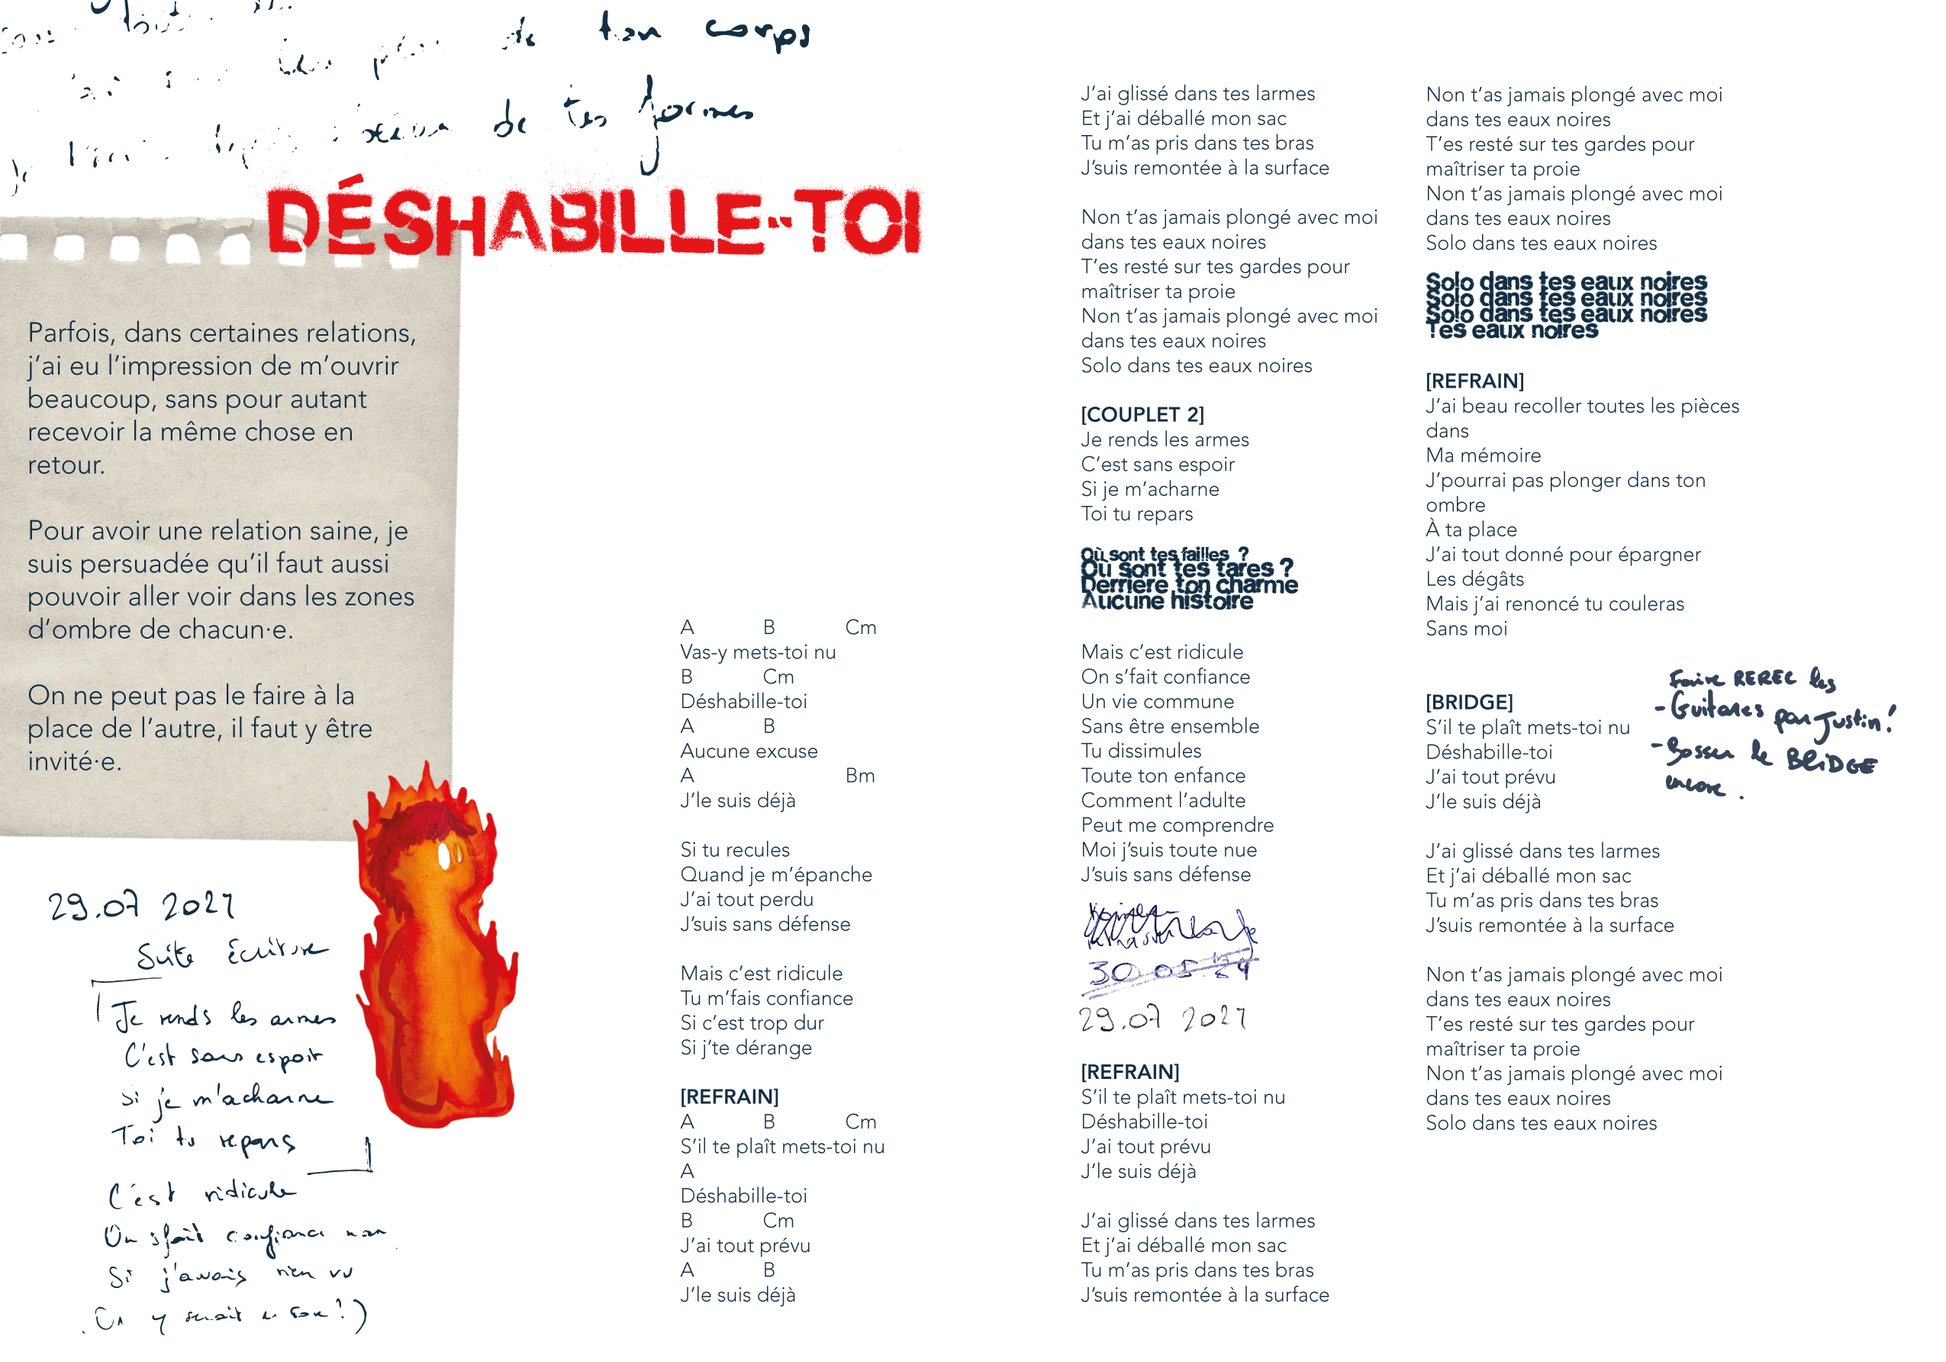 de ton corps
de tes formes
DÉSHABILLE-TOI
Parfois, dans certaines relations,
j'ai eu l'impression de m'ouvrir
beaucoup, sans pour autant
recevoir la même chose en
retour.
Pour avoir une relation saine, je
suis persuadée qu'il faut aussi
pouvoir aller voir dans les zones
d'ombre de chacun·e.
On ne peut pas le faire à la
place de l'autre, il faut y être
invité·e.
29.07 2021
Suite écriture
Je rends les armes
C'est sans espoir
Si je m'acharne
Toi tu repars
C'est ridicule
On s'fait confiance non
Si j'avais rien vu
A B Cm
Vas-y mets-toi nu
B Cm
Déshabille-toi
A B
Aucune excuse
A Bm
J'le suis déjà
Si tu recules
Quand je m'épanche
J'ai tout perdu
J'suis sans défense
Mais c'est ridicule
Tu m'fais confiance
Si c'est trop dur
Si j'te dérange
[REFRAIN]
A B Cm
S'il te plaît mets-toi nu
A
Déshabille-toi
B Cm
J'ai tout prévu
A B
J'le suis déjà
J'ai glissé dans tes larmes
Et j'ai déballé mon sac
Tu m'as pris dans tes bras
J'suis remontée à la surface
Non t'as jamais plongé avec moi
dans tes eaux noires
T'es resté sur tes gardes pour
maîtriser ta proie
Non t'as jamais plongé avec moi
dans tes eaux noires
Solo dans tes eaux noires
[COUPLET 2]
Je rends les armes
C'est sans espoir
Si je m'acharne
Toi tu repars
Où sont tes failles ?
Où sont tes tares ?
Derrière ton charme
Aucune histoire
Mais c'est ridicule
On s'fait confiance
Un vie commune
Sans être ensemble
Tu dissimules
Toute ton enfance
Comment l'adulte
Peut me comprendre
Moi j'suis toute nue
J'suis sans défense
30 05 24
29.07 2021
[REFRAIN]
S'il te plaît mets-toi nu
Déshabille-toi
J'ai tout prévu
J'le suis déjà
J'ai glissé dans tes larmes
Et j'ai déballé mon sac
Tu m'as pris dans tes bras
J'suis remontée à la surface
Non t'as jamais plongé avec moi
dans tes eaux noires
T'es resté sur tes gardes pour
maîtriser ta proie
Non t'as jamais plongé avec moi
dans tes eaux noires
Solo dans tes eaux noires
Solo dans tes eaux noires
Solo dans tes eaux noires
Solo dans tes eaux noires
Tes eaux noires
[REFRAIN]
J'ai beau recoller toutes les pièces
dans
Ma mémoire
J'pourrai pas plonger dans ton
ombre
À ta place
J'ai tout donné pour épargner
Les dégâts
Mais j'ai renoncé tu couleras
Sans moi
[BRIDGE]
S'il te plaît mets-toi nu
Déshabille-toi
J'ai tout prévu
J'le suis déjà
Faire REREC les
- Guitares par Justin !
- Bosser le BRIDGE
encore .
J'ai glissé dans tes larmes
Et j'ai déballé mon sac
Tu m'as pris dans tes bras
J'suis remontée à la surface
Non t'as jamais plongé avec moi
dans tes eaux noires
T'es resté sur tes gardes pour
maîtriser ta proie
Non t'as jamais plongé avec moi
dans tes eaux noires
Solo dans tes eaux noires